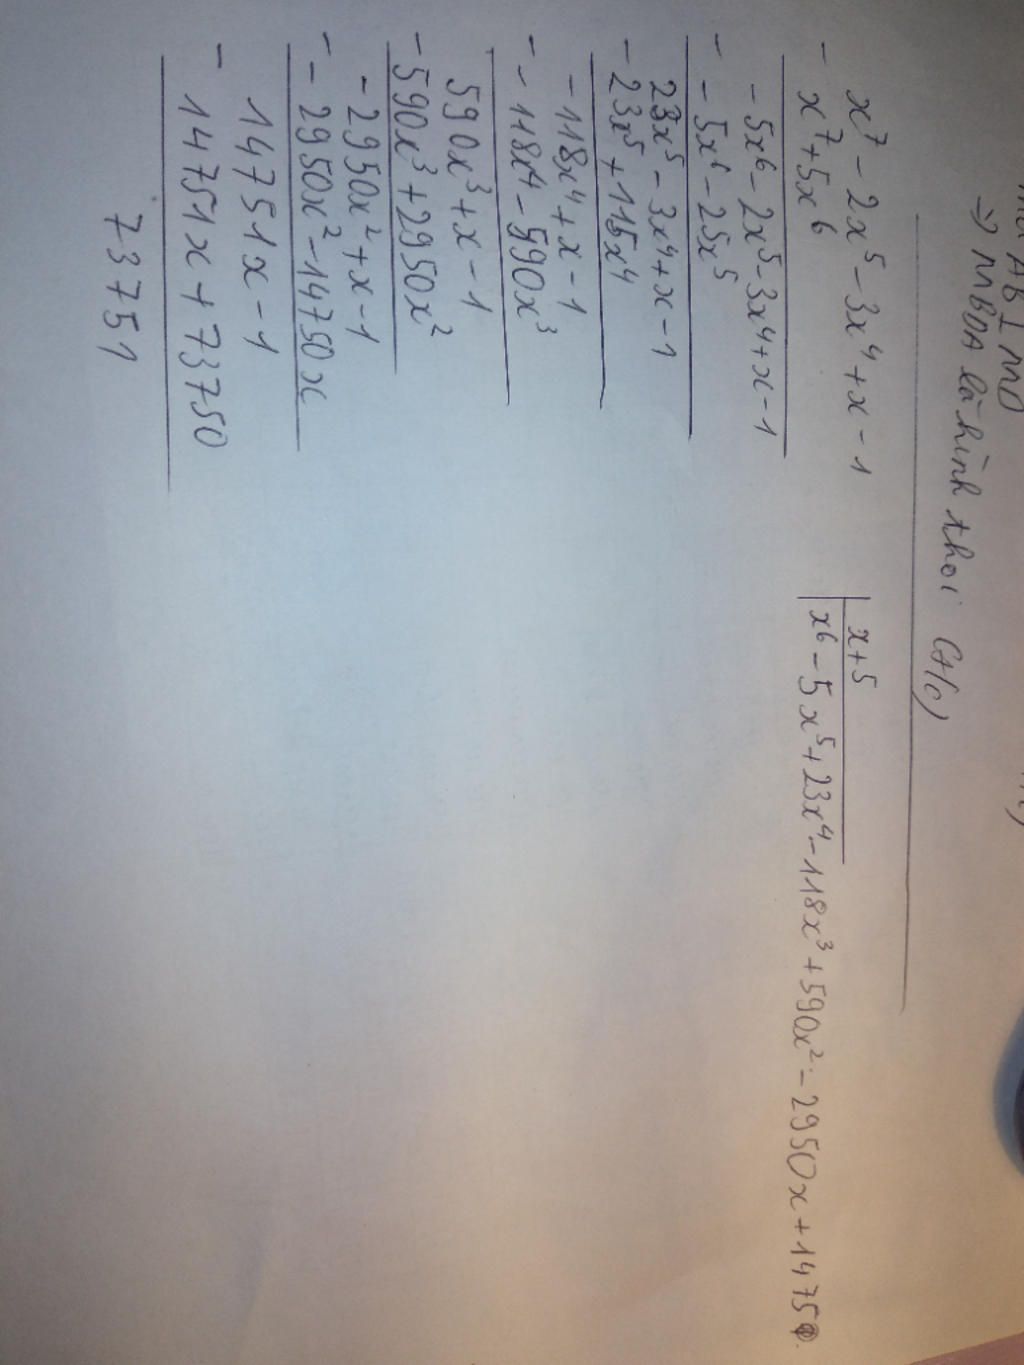 AB ⊥ MD
⇒ MBDA là hình thoi (H/c)
x⁷ - 2x⁵ - 3x⁴ + x - 1 | x + 5
- x⁷ + 5x⁶ | x⁶ - 5x⁵ + 23x⁴ - 118x³ + 590x² - 2950x + 1475
- 5x⁶ - 2x⁵ - 3x⁴ + x - 1
- - 5x⁶ - 25x⁵
23x⁵ - 3x⁴ + x - 1
- 23x⁵ + 115x⁴
- 118x⁴ + x - 1
- - 118x⁴ - 590x³
590x³ + x - 1
- 590x³ + 2950x²
- 2950x² + x - 1
- - 2950x² - 14750x
14751x - 1
- 14751x + 73750
73751